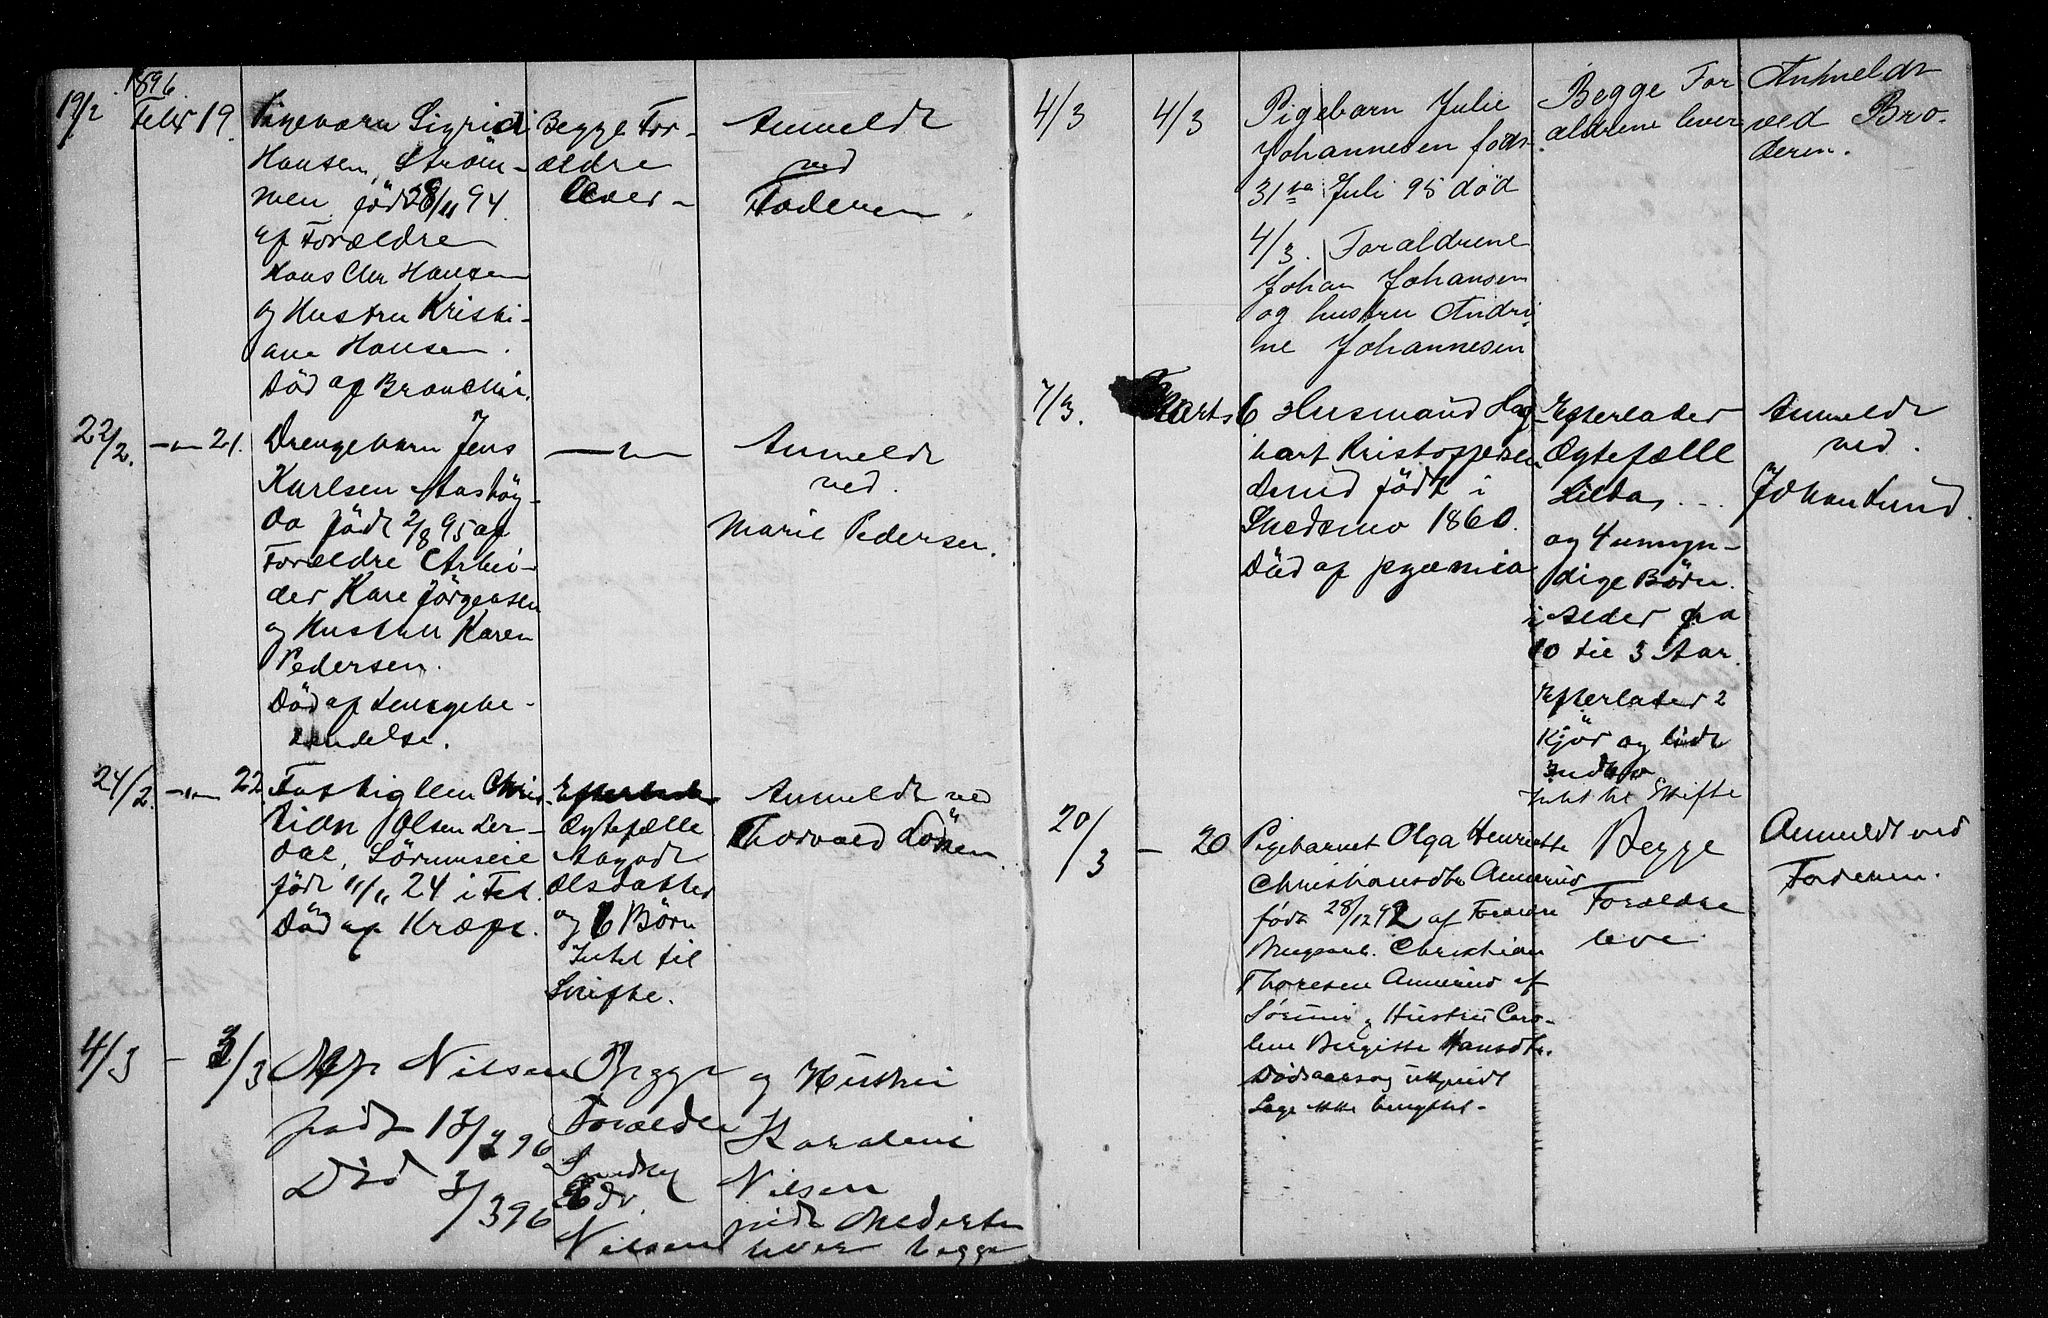 1896.
19/2 Febr 19. Pigebarn Sigrid
Hansen, Strøm-
men född 28/11 94.
af Forældre
Hans Chr Hansen
og Hustru Kristi-
ane Hansen.
Död af Bronchi.
Begge For-
ældre
lever -
Anmeldt
ved
Faderen.
22/2. -"- 21. Drengebarn Jens
Karlsen Aashøg-
da födt 2/8 95 af
Forældre Arbei-
der Karl Jörgensen
og Hustru Karen
Pedersen.
Död af Lungebe-
tændelse.
-"-
Anmeldt
ved.
Marie Pedersen.
24/2. -"- 22. Fattiglem Chris-
tian Olsen Ler-
dal, Sörumseie
födt 11/11 24 i Fet.
Död af Kræft.
Efterlader
Ægtefælle
Aagodt
Olsdatter
og 6 Børn
Intet til
Skifte.
Anmeldt ved
Thorvald Lönen
4/3 - 3/3 Alf Nilsen
födt 17/2 96
Död 3/3 96
Begge
Forældre
Edv.
Nilsen
og Hustru
Karoline
Nilsen
født
lever begge
4/3 4/3 Pigebarn Julie
Johannesen født
31te Juli 95 død
4/3. Forældrene
Johan Johansen
og hustru Andri
ne Johannesen
Begge For
ældrene lever
Anmeldt
ved Bro-
deren.
7/3. Marts 6 Husmand Hag
bart Kristoffersen
født i
Skedsmo 1860.
Död af pyæmia
Efterlader
Ægtefælle
Hilda
og 4 umyn-
dige Börn.
i Alder fra
10 til 3 Aar.
Efterlader 2
Kjør og lidt
Indbo
Intet til Skifte
Anmeldt
ved.
Johan Lund.
20/3 - 20 Pigebarnet Olga Henriette
Christiansdtr Annerud
født 28/12 92 af Forældre
Christian
Thoresen Annerud af
Sørum og Hustru Caro-
line Birgitte Hansdtr.
Dødsaarsag
Læge ikke benyttet -
Begge
Forældre
leve
Anmeldt ved
Faderen.